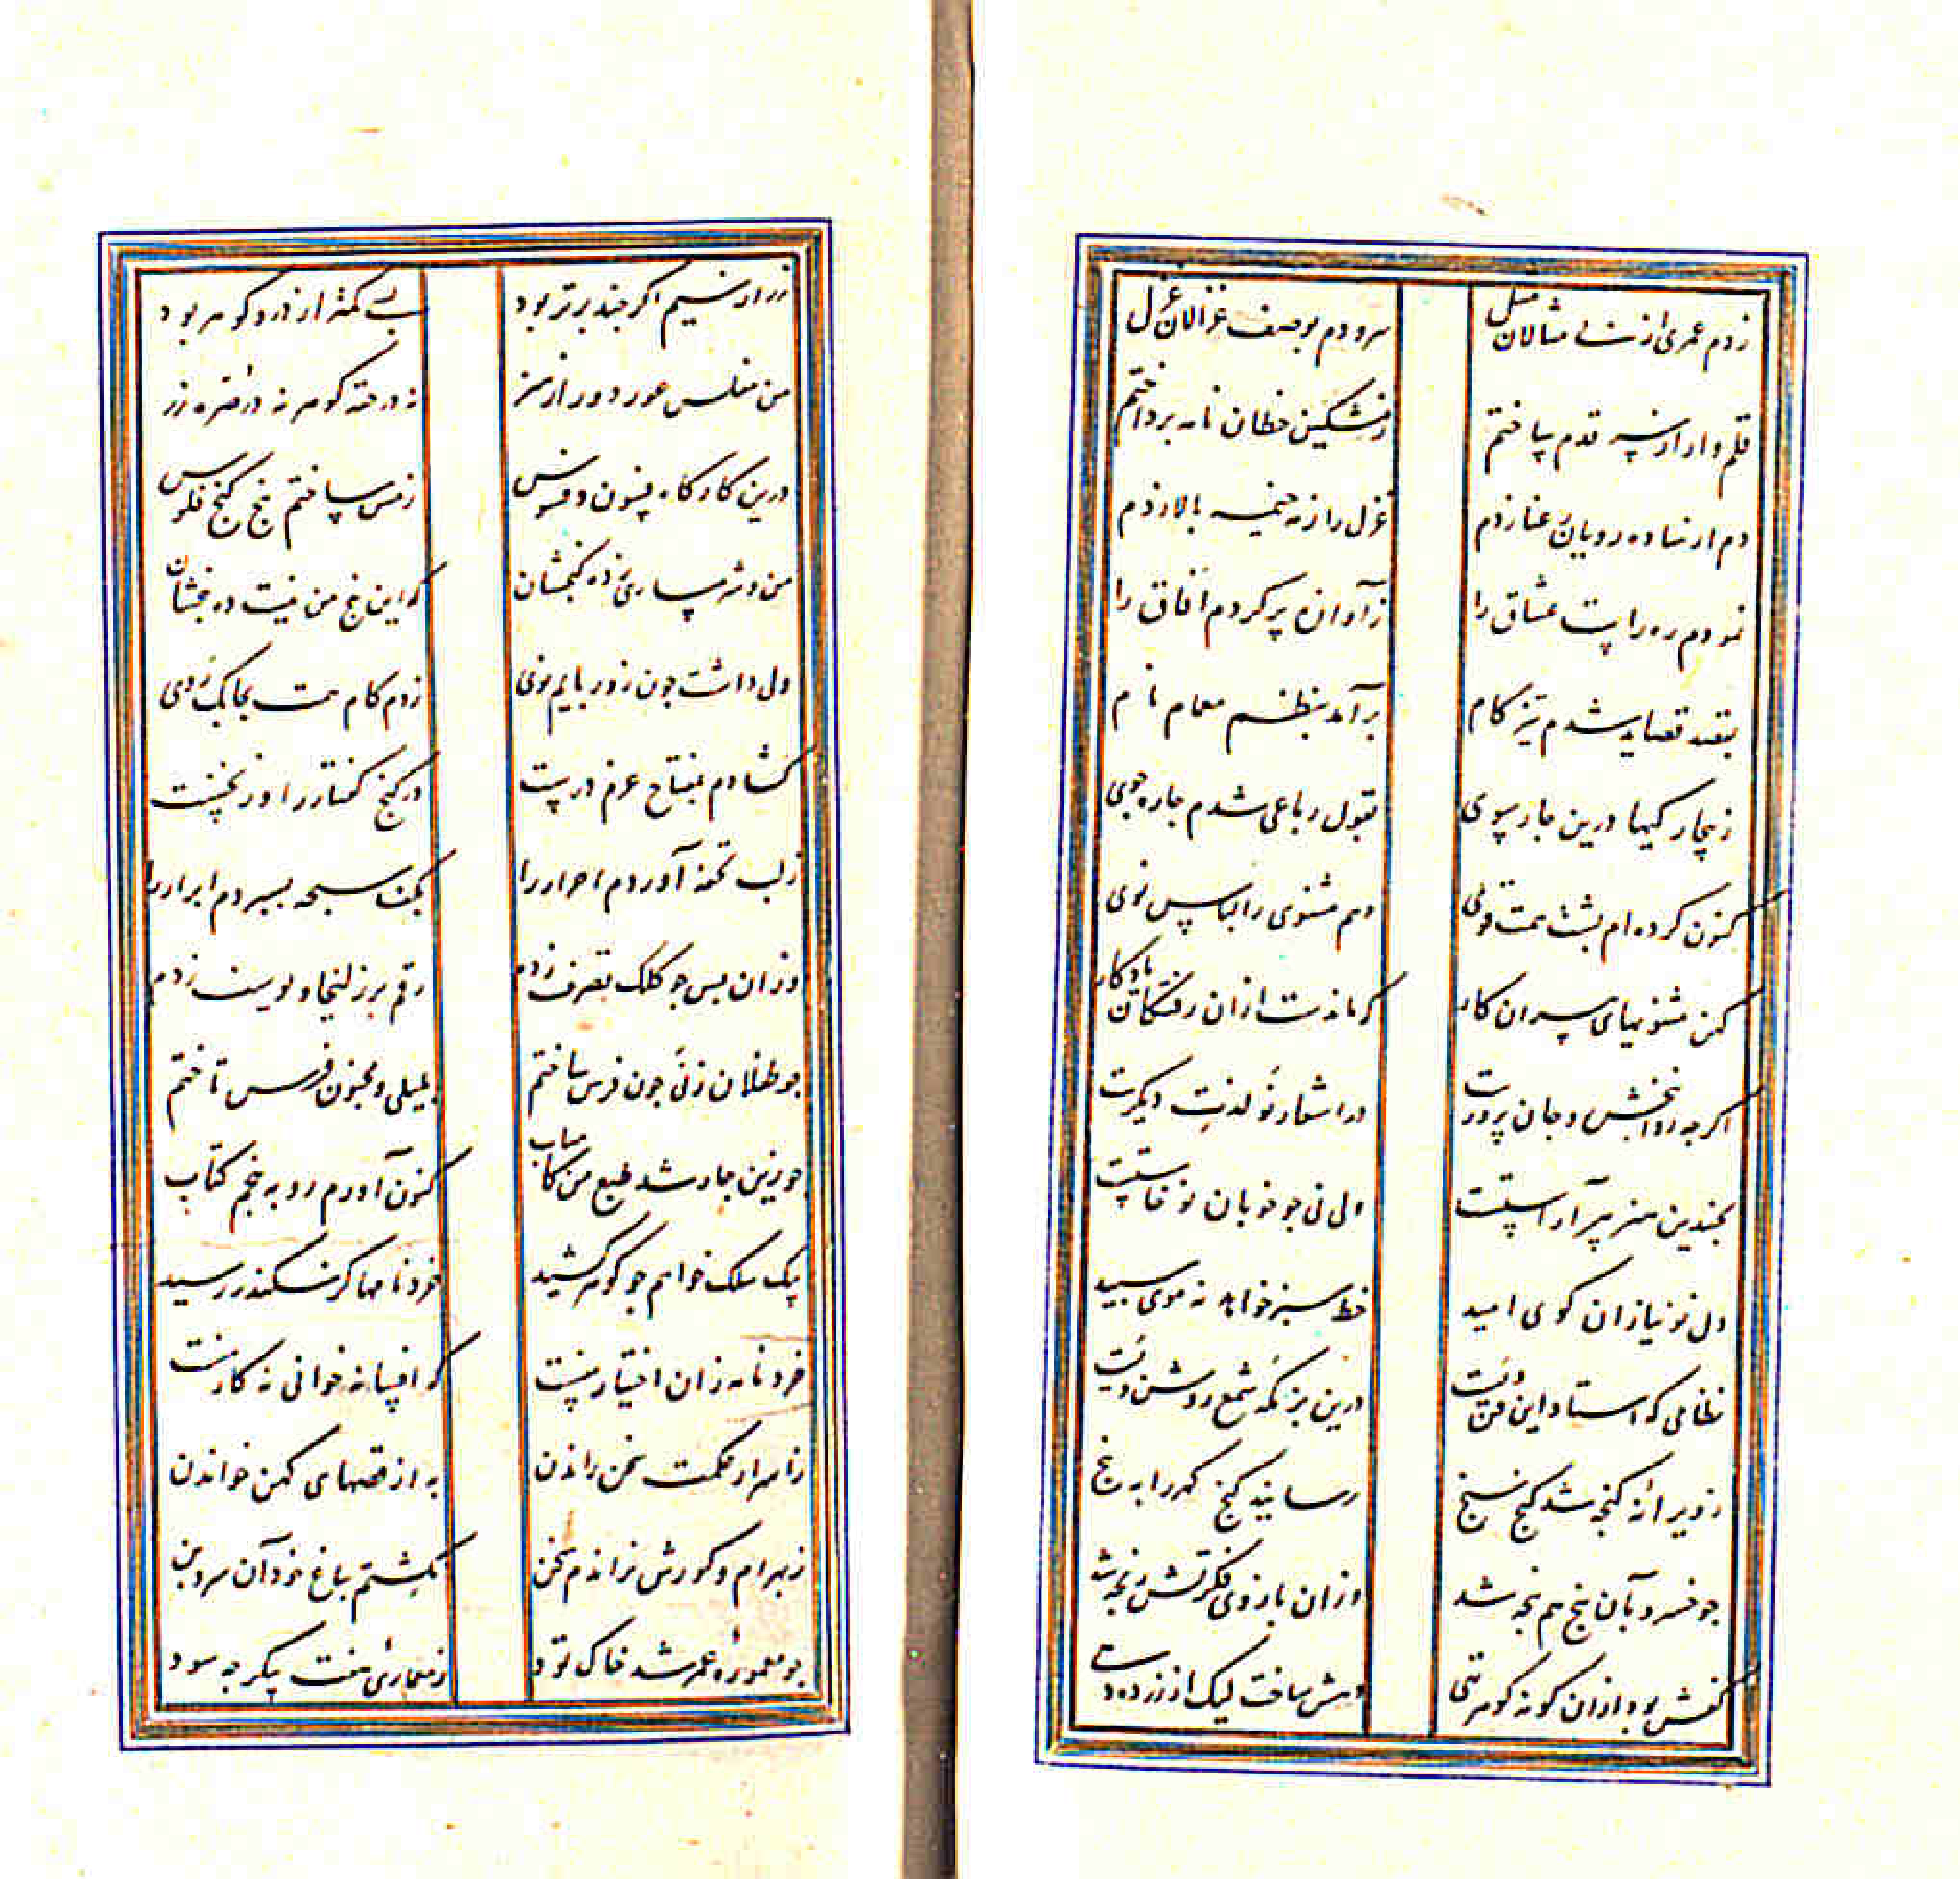 زدم عمری از بی مثالان مثل
سرودم بوصف غزالان غزل
قلم وار از سر قدم ساختم
ز مشکین خطان نامه پرداختم
دم از ساده رویان رعنا زدم
غزل را ز نه خیمه بالا زدم
نمودم ره راست عشاق را
ز آوازه پر کردم آفاق را
بقصد قصاید شدم تیز کام
برآمد بنظم معمام نام
ز بیچارکیها درین چار سوی
بقول رباعی شدم چاره جوی
کنون کرده ام پشت همت قوی
دهم مثنوی را لباس نوی
کهن مثنویهای پیران کار
که ماندست ازان رفتکان یادکار
اکرچه روان بخش و جان پرورست
در اشعار نو لذت دیکرست
بچندین هنر پیر آراستست
ولی نی چو خوبان نوخاستست
دل نو نیازان کوی امید
خط سبز خواهد نه موی سپید
نظامی که استاد این فن ویست
درین بزمکه شمع روشن ویست
ز ویرانهٔ کنجه شد کنج سنج
رسانید کنج کهر را به پنج
چو خسرو بآن پنج هم پنجه شد
وزان بازوی فکرتش رنجه شد
کفش بود ازان کونه کوهر تهی
همش ساخت لیک از زر ده دهی
زر از سیم اکر چند برتر بود
بسی کمتر از در و کوهر بود
من مفلس عور دور از هنر
نه در حقه کوهر نه در صره زر
درین کارکاه فسون و فسوس
ز مس ساختم پنج کنج فلوس
من و شرمساری ز ده کنجشان
که این پنج من نیست ده پنجشان
ولی داشت چون زور بازیم نوی
زدم کام همت بچابک روی
کشادم بمفتاح عزم درست
در کنج کفتار را در نخست
ز لب تحفه آوردم احرار را
بکف سبحه بسپردم ابرار را
وزان پس چو کلک تصرف زدم
رقم بر زلیخا و یوسف زدم
چو طفلان ز نی چون فرس ساختم
بلیلی و مجنون فرس تاختم
چو زین چار شد طبع من کامیاب
کنون آورم رو به پنجم کتاب
بیک سلک خواهم چو کوهر کشید
خردنامها کز سکندر رسید
خردنامه زان اختیار منست
که افسانه خوانی نه کار منست
ز اسرار حکمت سخن راندن
به از قصهای کهن خواندن
ز بهرام و کورش نراندم سخن
نکشتم بباغ خود آن سروبن
چو معمورهٔ عمر شد خاک تود
ز معماری هفت پیکر چه سود